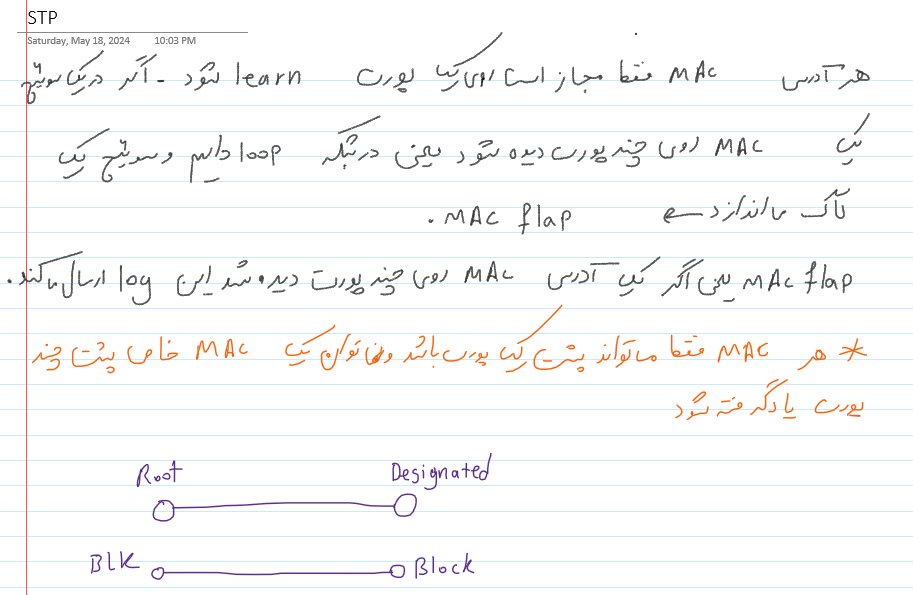 STP
Saturday, May 18, 2024 10:03 PM
هر آدرس MAC فقط مجاز است روی یک پورت learn شود - اگر در یک سوئیچ
یک MAC روی چند پورت دیده شود یعنی در شبکه loop داریم و سوئیچ یک
لاگ می اندازد MAC flap .
MAC flap یعنی اگر یک آدرس MAC روی چند پورت دیده شد این log ارسال می کند.
* هر MAC فقط می تواند پشت یک پورت باشد و نمی توان یک MAC خاص پشت چند
پورت یاد گرفته شود
Root Designated
BLK Block